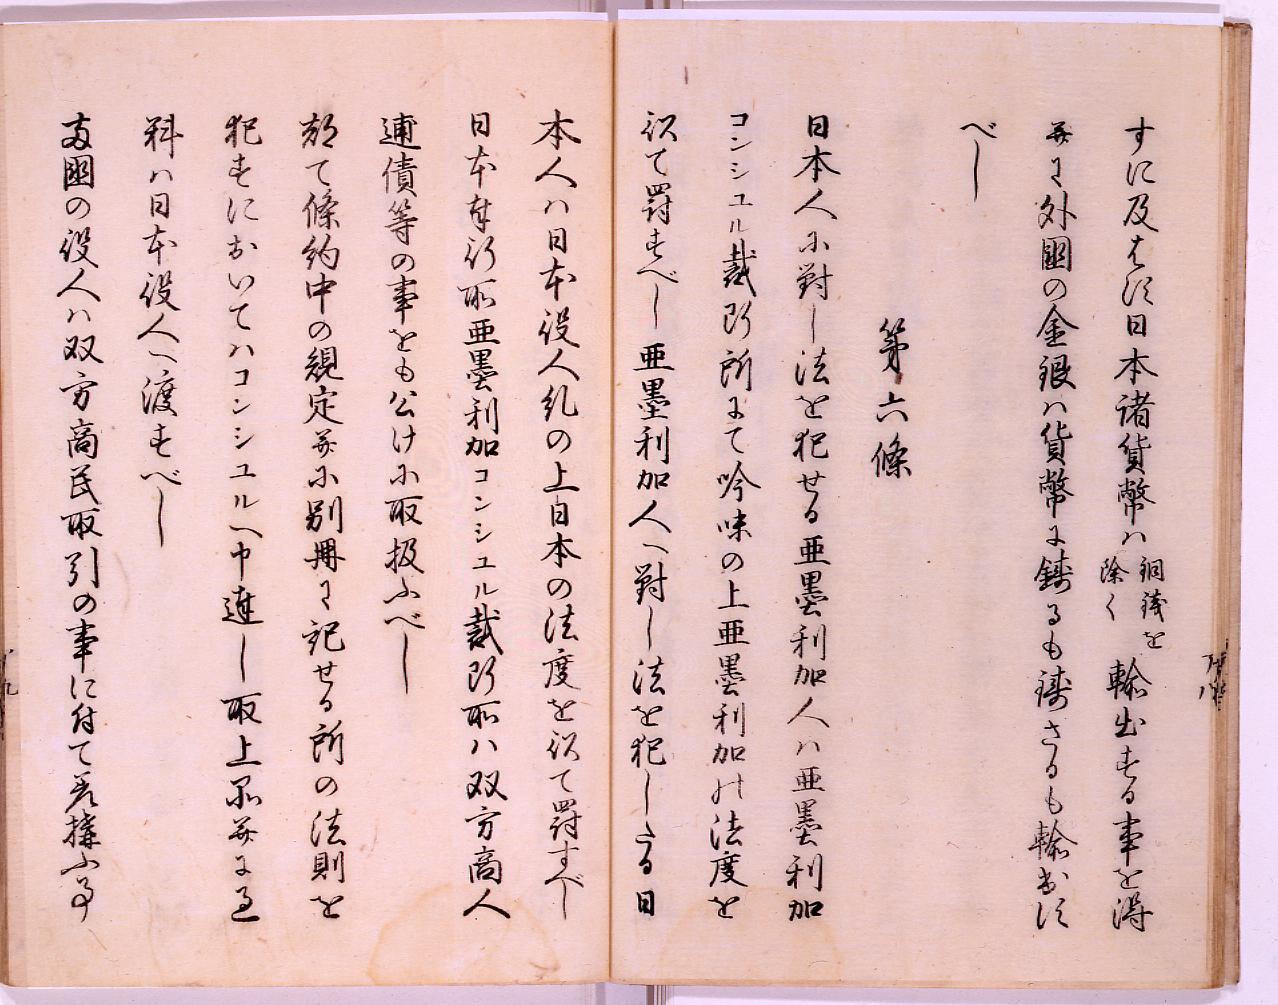 すに及はす日本諸貨幣ハ銅銭を除く輸出する事を得
并に外國の金銀ハ貨幣に鋳るも鋳さるも輸出す
べし
第六條
日本人に對し法を犯せる亜墨利加人ハ亜墨利加
コンシユル裁断所にて吟味の上亜墨利加の法度を
以て罰すべし亜墨利加人へ對し法を犯したる日
本人ハ日本役人糺の上日本の法度を以て罰すべし
日本奉行所亜墨利加コンシユル裁断所ハ双方商人
逋債等の事をも公けに取扱ふべし
都て條約中の規定并に別冊に記せる所の法則を
犯すにおいてハコンシユルへ申達し取上品并に過
料ハ日本役人へ渡すべし
両國の役人ハ双方商民取引の事に付て差構ふ事